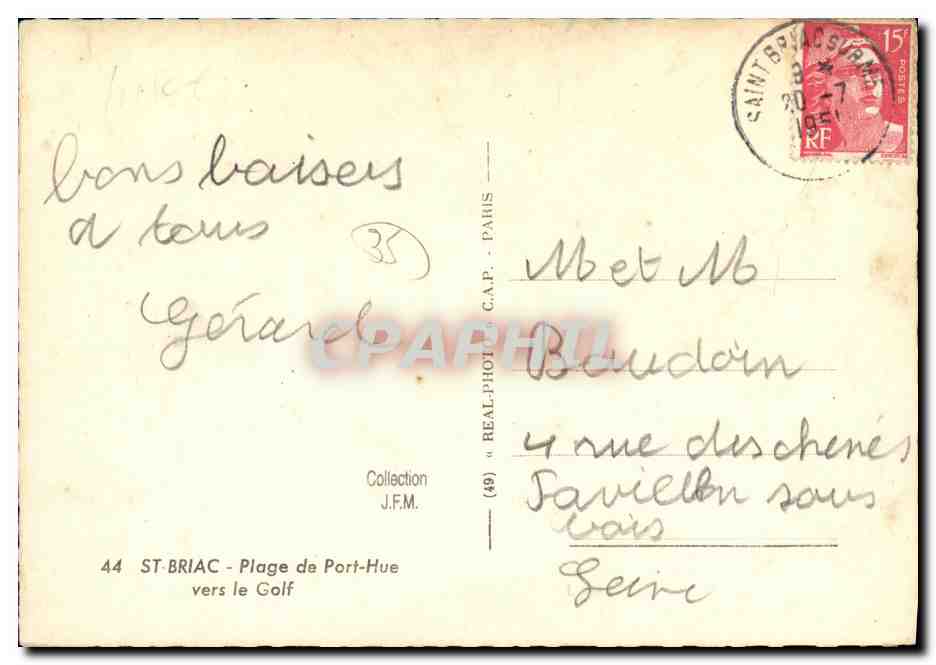 bons baisers
a tous
Gérard
35
Collection
J.F.M.
44 ST-BRIAC - Plage de Port-Hue
vers le Golf
(49) « REAL-PHOTO » C.A.P. - PARIS
SAINT BRIAC SUR MER
20 -7
1951
15F
POSTES
RF
M et M
Baudoin
4 rue des chenes
Pavillon sous
bois
Seine
CPAPHIL